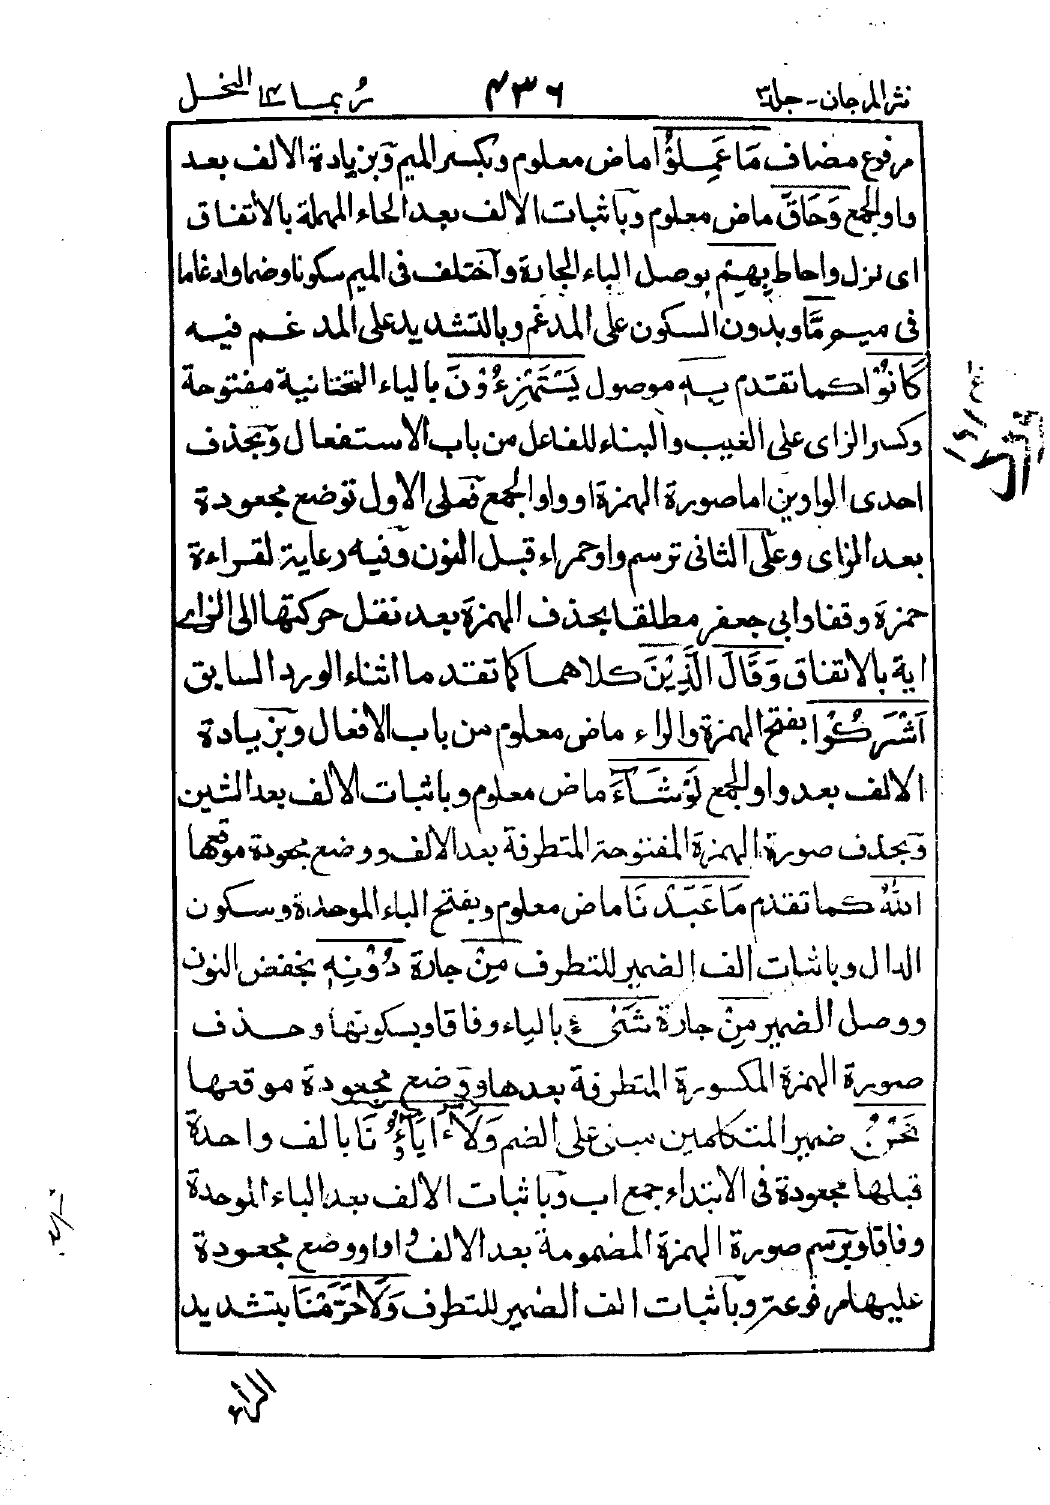 نثر المرجان - جلد٣ ٤٣٦ رُبما ١٤ النحل
مرفوع مضاف مَا عَمِلُوْا ماض معلوم وبكسر الميم وبزيادة الالف بعد
واو الجمع وَحَاقَ ماض معلوم وباثبات الالف بعد الحاء المهملة بالاتفاق
اى نزل واحاط بِهِمْ بوصل الباء الجارة واختلف فى الميم سكونا وضما وادغاما
فى ميم مَّا وبدون السكون على المدغم وبالتشديد على المدغم فيه
كَانُوْا كما تقدم بِهٖ موصول يَسْتَهْزِءُوْنَ بالياء التحتانية مفتوحة
وكسر الزاى على الغيب والبناء للفاعل من باب الاستفعال وبحذف
احدى الواوين اما صورة الهمزة او واو الجمع فعلى الاول توضع مجعودة
بعد الزاى وعلى الثانى ترسم واو حمراء قبل النون وفيه رعاية لقراءة
حمزة وقفا وابي جعفر مطلقا بحذف الهمزة بعد نقل حركتها الى الزاى
اية بالاتفاق وَقَالَ الَّذِيْنَ كلاهما كما تقدم اثناء الورد السابق
اَشْرَكُوْا بفتح الهمزة والراء ماض معلوم من باب الافعال وبزيادة
الالف بعد واو الجمع لَوْ شَآءَ ماض معلوم وباثبات الالف بعد الشين
وبحذف صورة الهمزة المفتوحة المتطرفة بعد الالف ووضع مجعودة موقعها
اللهُ كما تقدم مَا عَبَدْنَا ماض معلوم وبفتح الباء الموحدة وسكون
الدال وباثبات الف الضمير للتطرف مِنْ جارة دُوْنِهٖ بخفض النون
ووصل الضمير مِنْ جارة شَىْءٍ بالياء وفاقا وبسكونها وحذف
صورة الهمزة المكسورة المتطرفة بعدها ووضع مجعودة موقعها
نَحْنُ ضمير المتكلمين مبنى على الضم وَلَآ اٰبَآؤُنَا بالف واحدة
قبلها مجعودة فى الابتداء جمع اب وباثبات الالف بعد الباء الموحدة
وفاقا وبرسم صورة الهمزة المضمومة بعد الالف واوا ووضع مجعودة
عليها مرفوعة وباثبات الف الضمير للتطرف وَلَا حَرَّمْنَا بتشديد
الراء